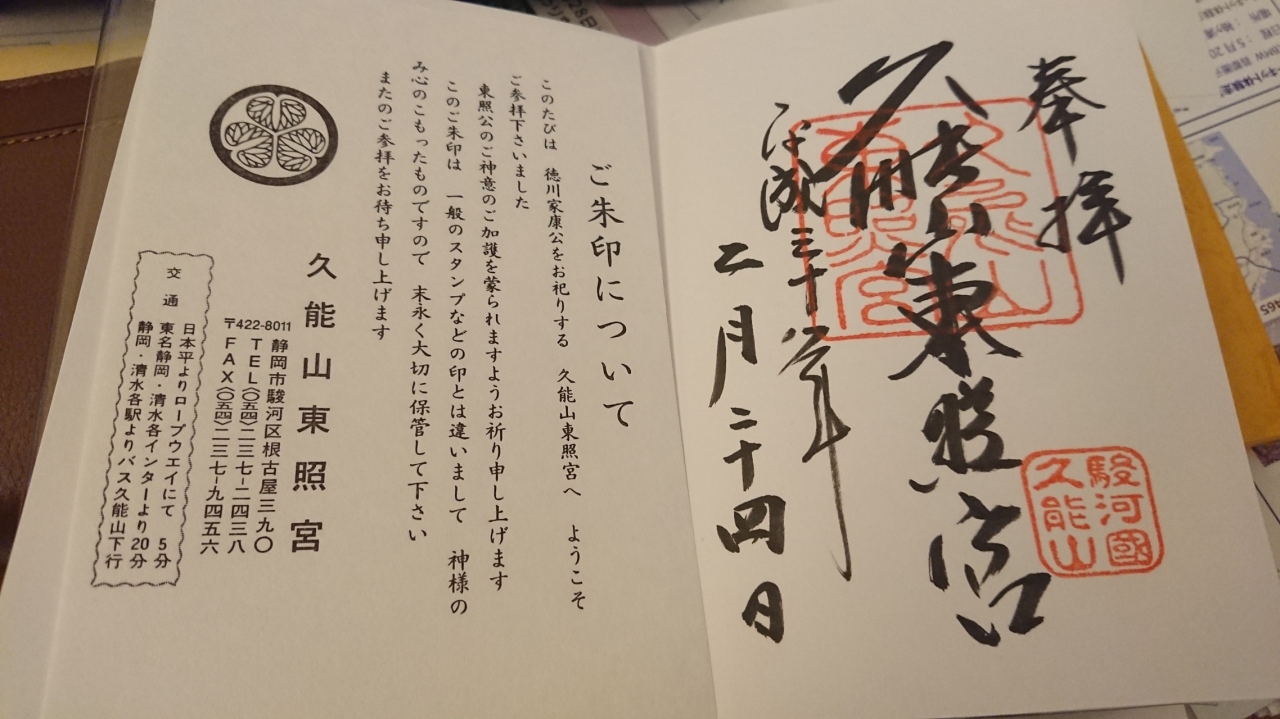 奉拝
久能山東照宮
平成三十年
二月二十四日
久能山
東照宮
駿河國
久能山
ご朱印について
このたびは 徳川家康公をお祀りする 久能山東照宮へ ようこそ
ご参拝下さいました
東照公のご神意のご加護を蒙られますようお祈り申し上げます
このご朱印は 一般のスタンプなどの印とは違いまして 神様の
み心のこもったものですので 末永く大切に保管して下さい
またのご参拝をお待ち申し上げます
久能山東照宮
〒422-8011 静岡市駿河区根古屋三九〇
TEL(〇五四)二三七-二四三八
FAX(〇五四)二三七-九四五六
交通
日本平よりロープウエイにて 5分
東名静岡・清水各インターより20分
静岡・清水各駅よりバス久能山下行